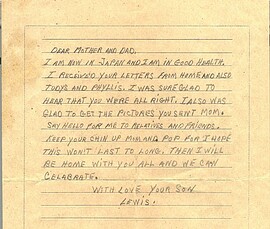 DEAR MOTHER AND DAD,
I AM NOW IN JAPAN AND I AM IN GOOD HEALTH.
I RECEIVED YOUR LETTERS FROM HOME AND ALSO
TODYS AND PHYLLIS. I WAS SURE GLAD TO
HEAR THAT YOU WERE ALL RIGHT. I ALSO WAS
GLAD TO GET THE PICTURES YOU SENT MOM.
SAY HELLO FOR ME TO RELATIVES AND FRIENDS.
KEEP YOUR CHIN UP MOM AND POP FOR I HOPE
THIS WON'T LAST TO LONG. THEN I WILL
BE HOME WITH YOU ALL AND WE CAN
CELABRATE.
WITH LOVE YOUR SON
LEWIS.